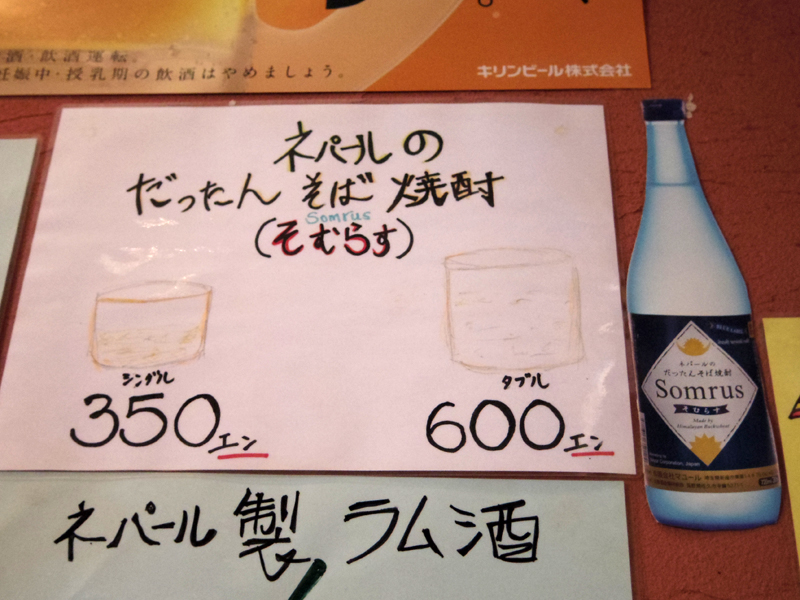 酒・飲酒運転。
妊娠中・授乳期の飲酒はやめましょう。
キリンビール株式会社
ネパールの
だったん そば 焼酎
Somrus
(そむらす)
シングル
350エン
タブル
600エン
ネパールの
だったんそば焼酎
Somrus
そむらす
Made by
Himalayan Buckwheat
ネパール 製 ラム酒